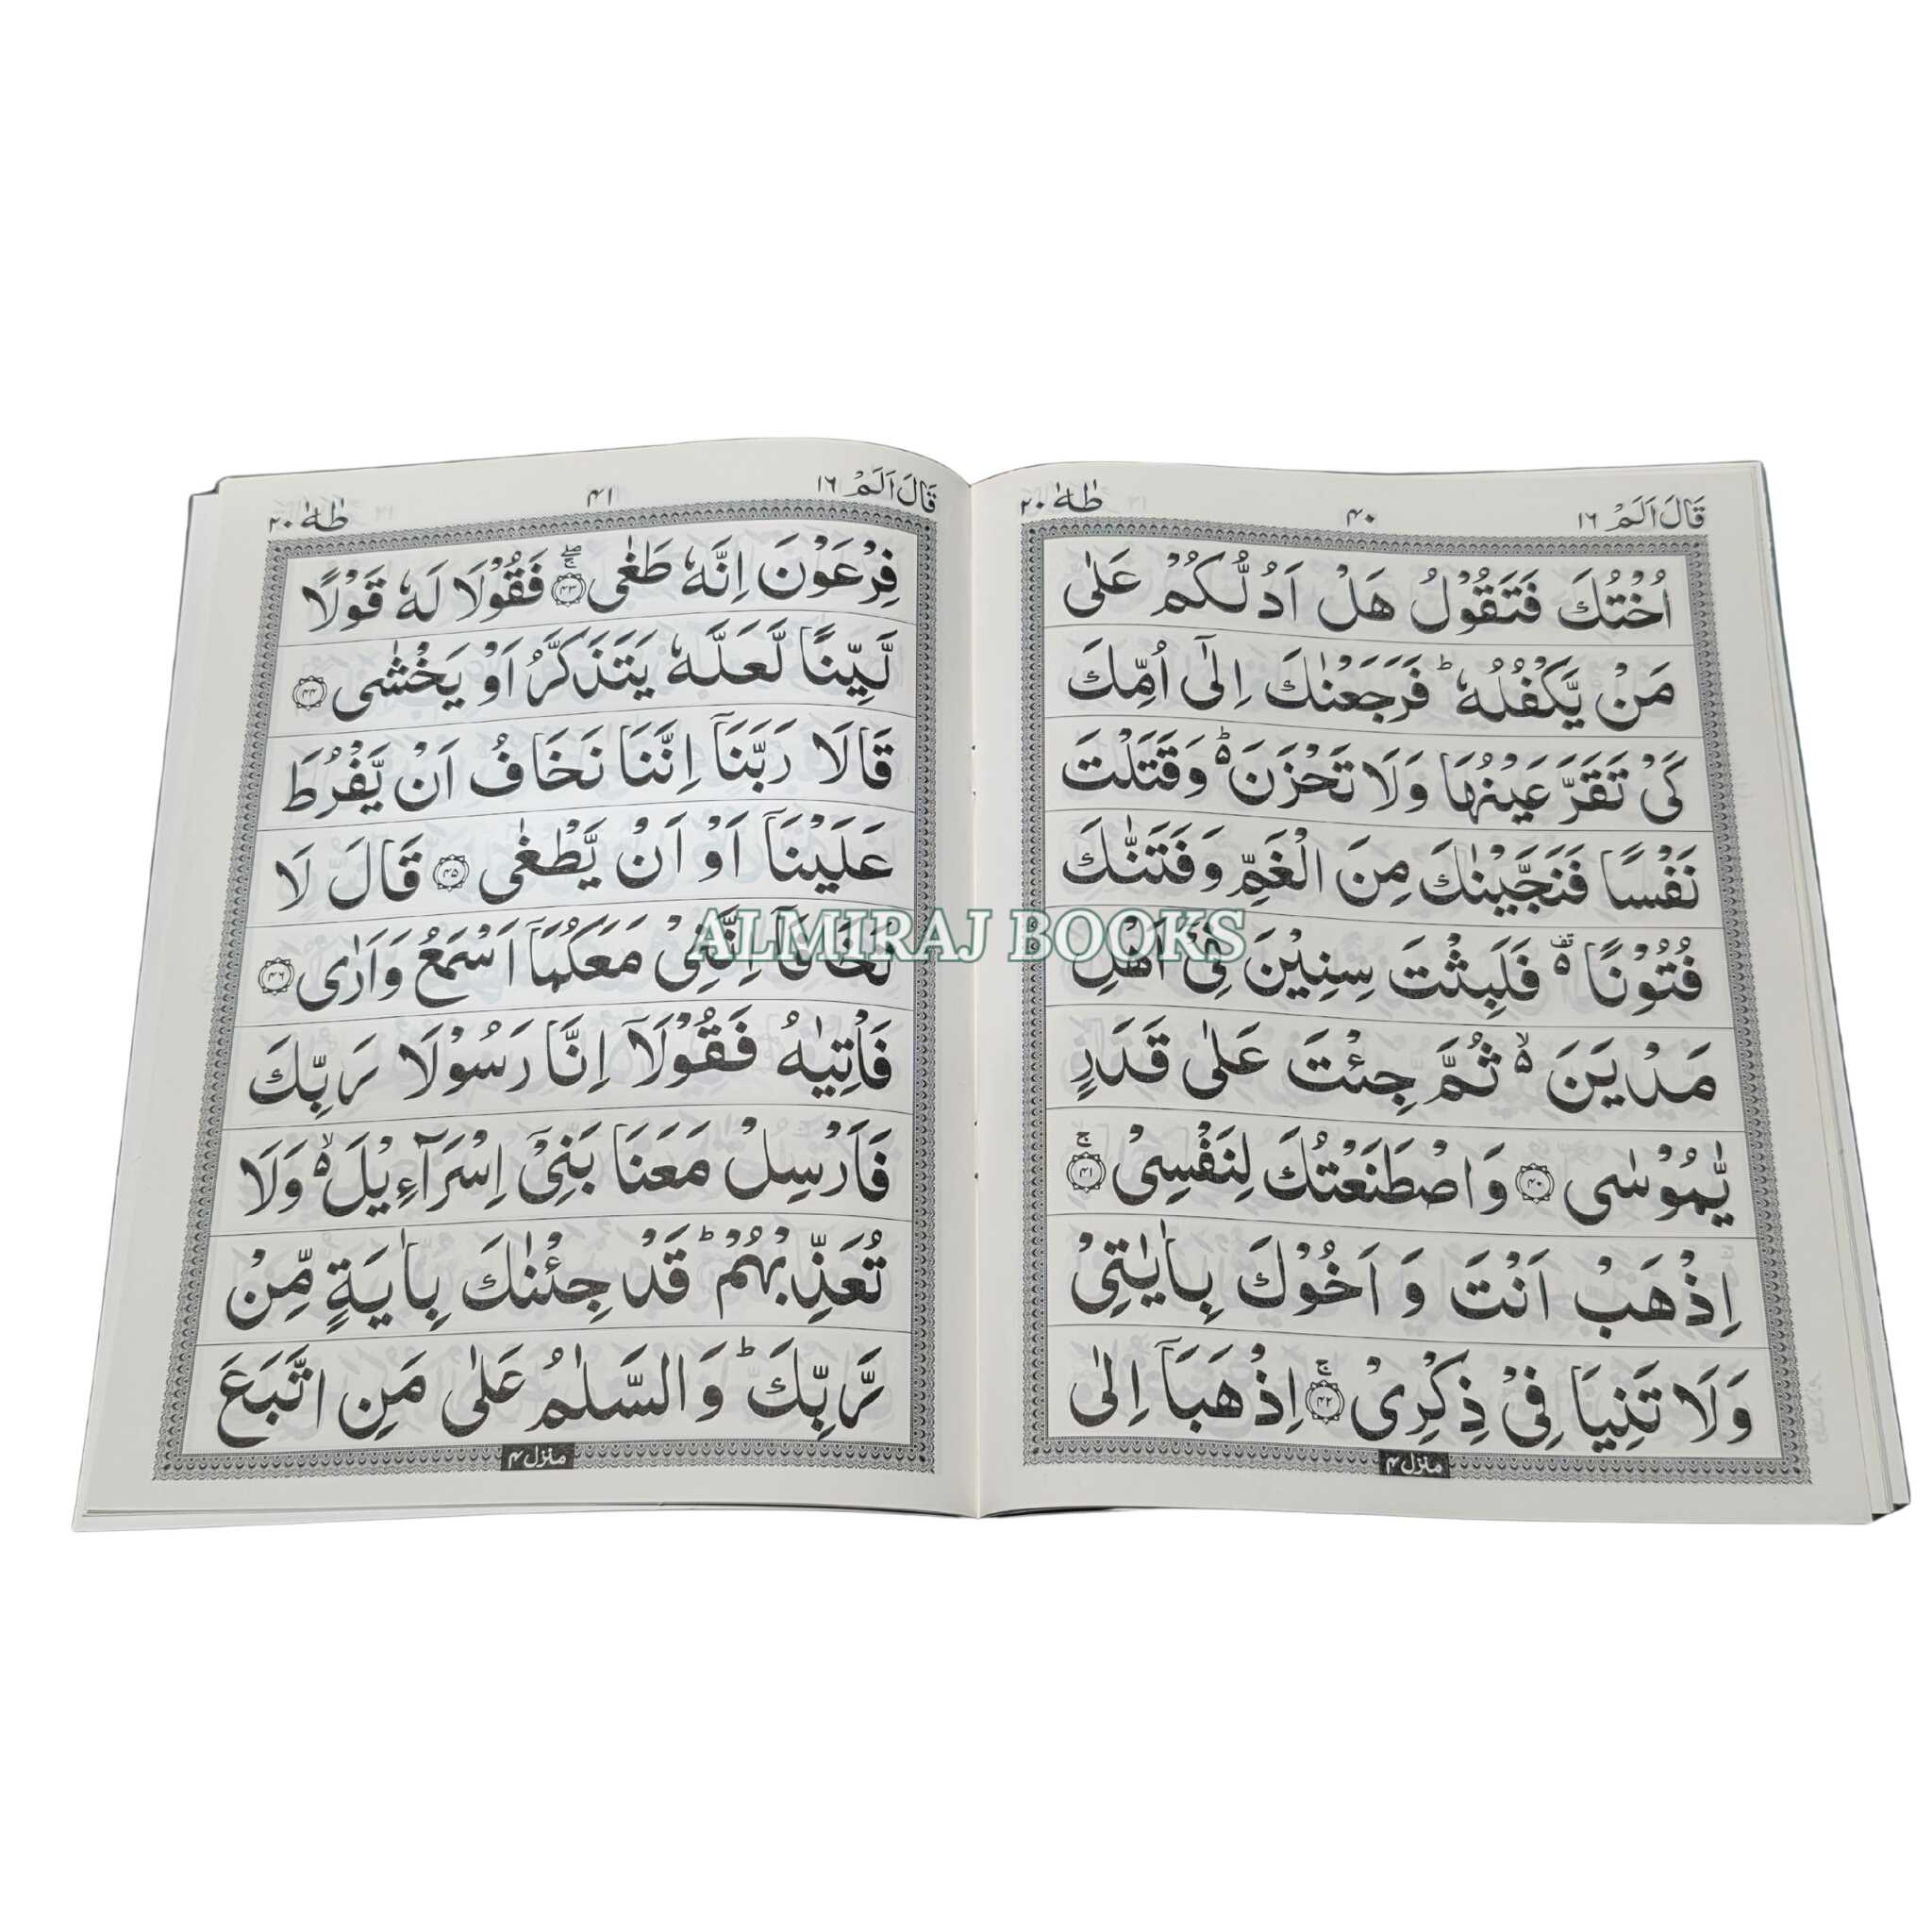 قَالَ اَلَمْ ١٦
٤٠
طٰهٰ ٢٠
اُخْتُكَ فَتَقُوْلُ هَلْ اَدُلُّكُمْ عَلٰى
مَنْ يَّكْفُلُهٗ ؕ فَرَجَعْنٰكَ اِلٰٓى اُمِّكَ
كَىْ تَقَرَّ عَيْنُهَا وَلَا تَحْزَنَ ؕ۬ وَقَتَلْتَ
نَفْسًا فَنَجَّيْنٰكَ مِنَ الْغَمِّ وَفَتَنّٰكَ
فُتُوْنًا ۫ فَلَبِثْتَ سِنِيْنَ فِىْٓ اَهْلِ
مَدْيَنَ ۙ۬ ثُمَّ جِئْتَ عَلٰى قَدَرٍ
يّٰمُوْسٰى ﴿٤٠﴾ وَاصْطَنَعْتُكَ لِنَفْسِىْ ۚ ﴿٤١﴾
اِذْهَبْ اَنْتَ وَ اَخُوْكَ بِاٰيٰتِىْ
وَلَا تَنِيَا فِىْ ذِكْرِىْ ۚ ﴿٤٢﴾ اِذْهَبَآ اِلٰى
منزل ٤
قَالَ اَلَمْ ١٦
٤١
طٰهٰ ٢٠
فِرْعَوْنَ اِنَّهٗ طَغٰى ۚۖ ﴿٤٣﴾ فَقُوْلَا لَهٗ قَوْلًا
لَّيِّنًا لَّعَلَّهٗ يَتَذَكَّرُ اَوْ يَخْشٰى ﴿٤٤﴾
قَالَا رَبَّنَآ اِنَّنَا نَخَافُ اَنْ يَّفْرُطَ
عَلَيْنَآ اَوْ اَنْ يَّطْغٰى ﴿٤٥﴾ قَالَ لَا
تَخَافَآ اِنَّنِىْ مَعَكُمَآ اَسْمَعُ وَاَرٰى ﴿٤٦﴾
فَاْتِيٰهُ فَقُوْلَآ اِنَّا رَسُوْلَا رَبِّكَ
فَاَرْسِلْ مَعَنَا بَنِىْٓ اِسْرَآءِيْلَ ۙ۬ وَلَا
تُعَذِّبْهُمْ ؕ قَدْ جِئْنٰكَ بِاٰيَةٍ مِّنْ
رَّبِّكَ ؕ وَالسَّلٰمُ عَلٰى مَنِ اتَّبَعَ
منزل ٤
ALMIRAJ BOOKS